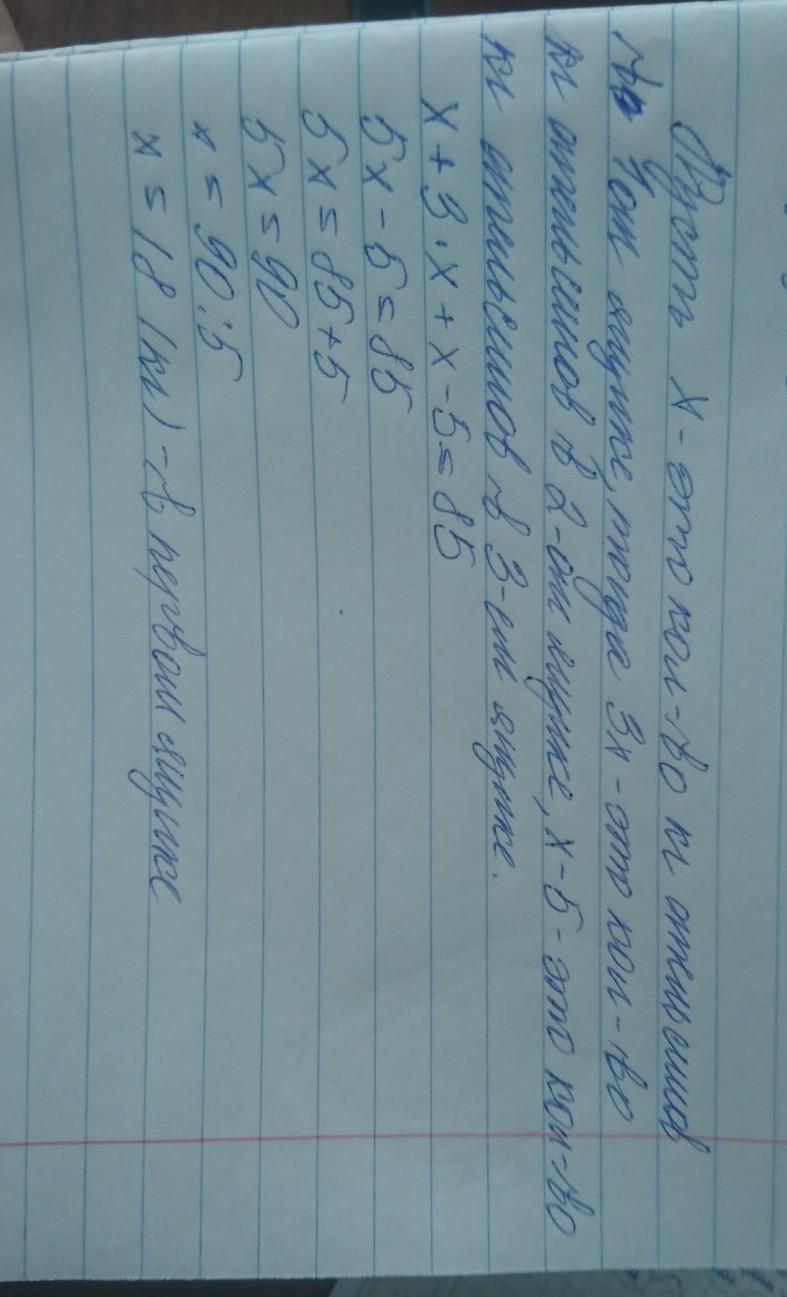 Пусть x - это кол-во кг апельсинов
в 1 ом ящике, тогда 3x - это кол-во
кг апельсинов в 2-ом ящике, x-5 - это кол-во
кг апельсинов в 3-ем ящике.
x + 3 · x + x - 5 = 85
5x - 5 = 85
5x = 85 + 5
5x = 90
x = 90 : 5
x = 18 (кг) - в первом ящике